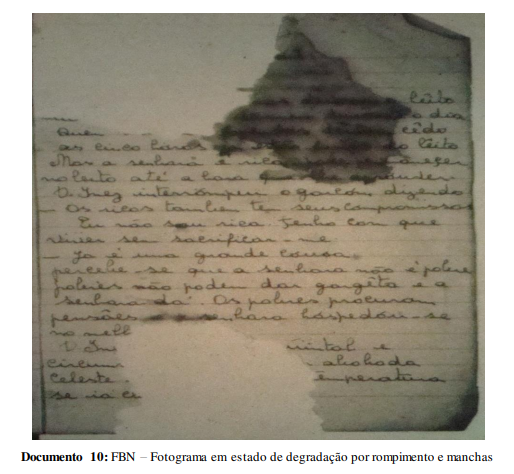 leito
o dia
Quem cêdo
as cinco horas o leito
Mas a senhora é rica
no leito até a hora
D. Inez interrompeu o garçon, dizendo
— Os ricos tambem tem seus compromissos
Eu não sou rica. Tenho com que
viver sem sacrificar-me
— Ja é uma grande cousa.
percebe-se que a senhora não é pobre
pobres não podem dar gorgêta e a
senhora dá. Os pobres procuram
pensões senhora hospedou-se
no melh
D. Ine
abobada
celeste. emperatura
se ia
Documento 10: FBN – Fotograma em estado de degradação por rompimento e manchas